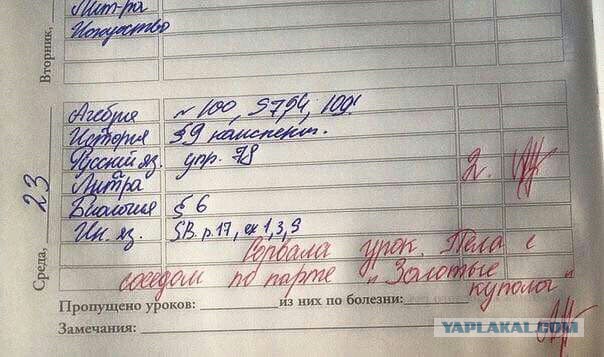 Лит-ра
Искусство
Вторник,
Алгебра № 100, 5794, 109!
История §9 конспект.
Русский яз. упр. 78
Лит-ра 2.
Биология § 6
Ин. яз. SB. p. 17, ex 1,3,9
Среда, 23
Сорвала урок. Пела с
соседом по парте „Золотые
купола"
Пропущено уроков: из них по болезни:
Замечания:
YAPLAKAL.COM